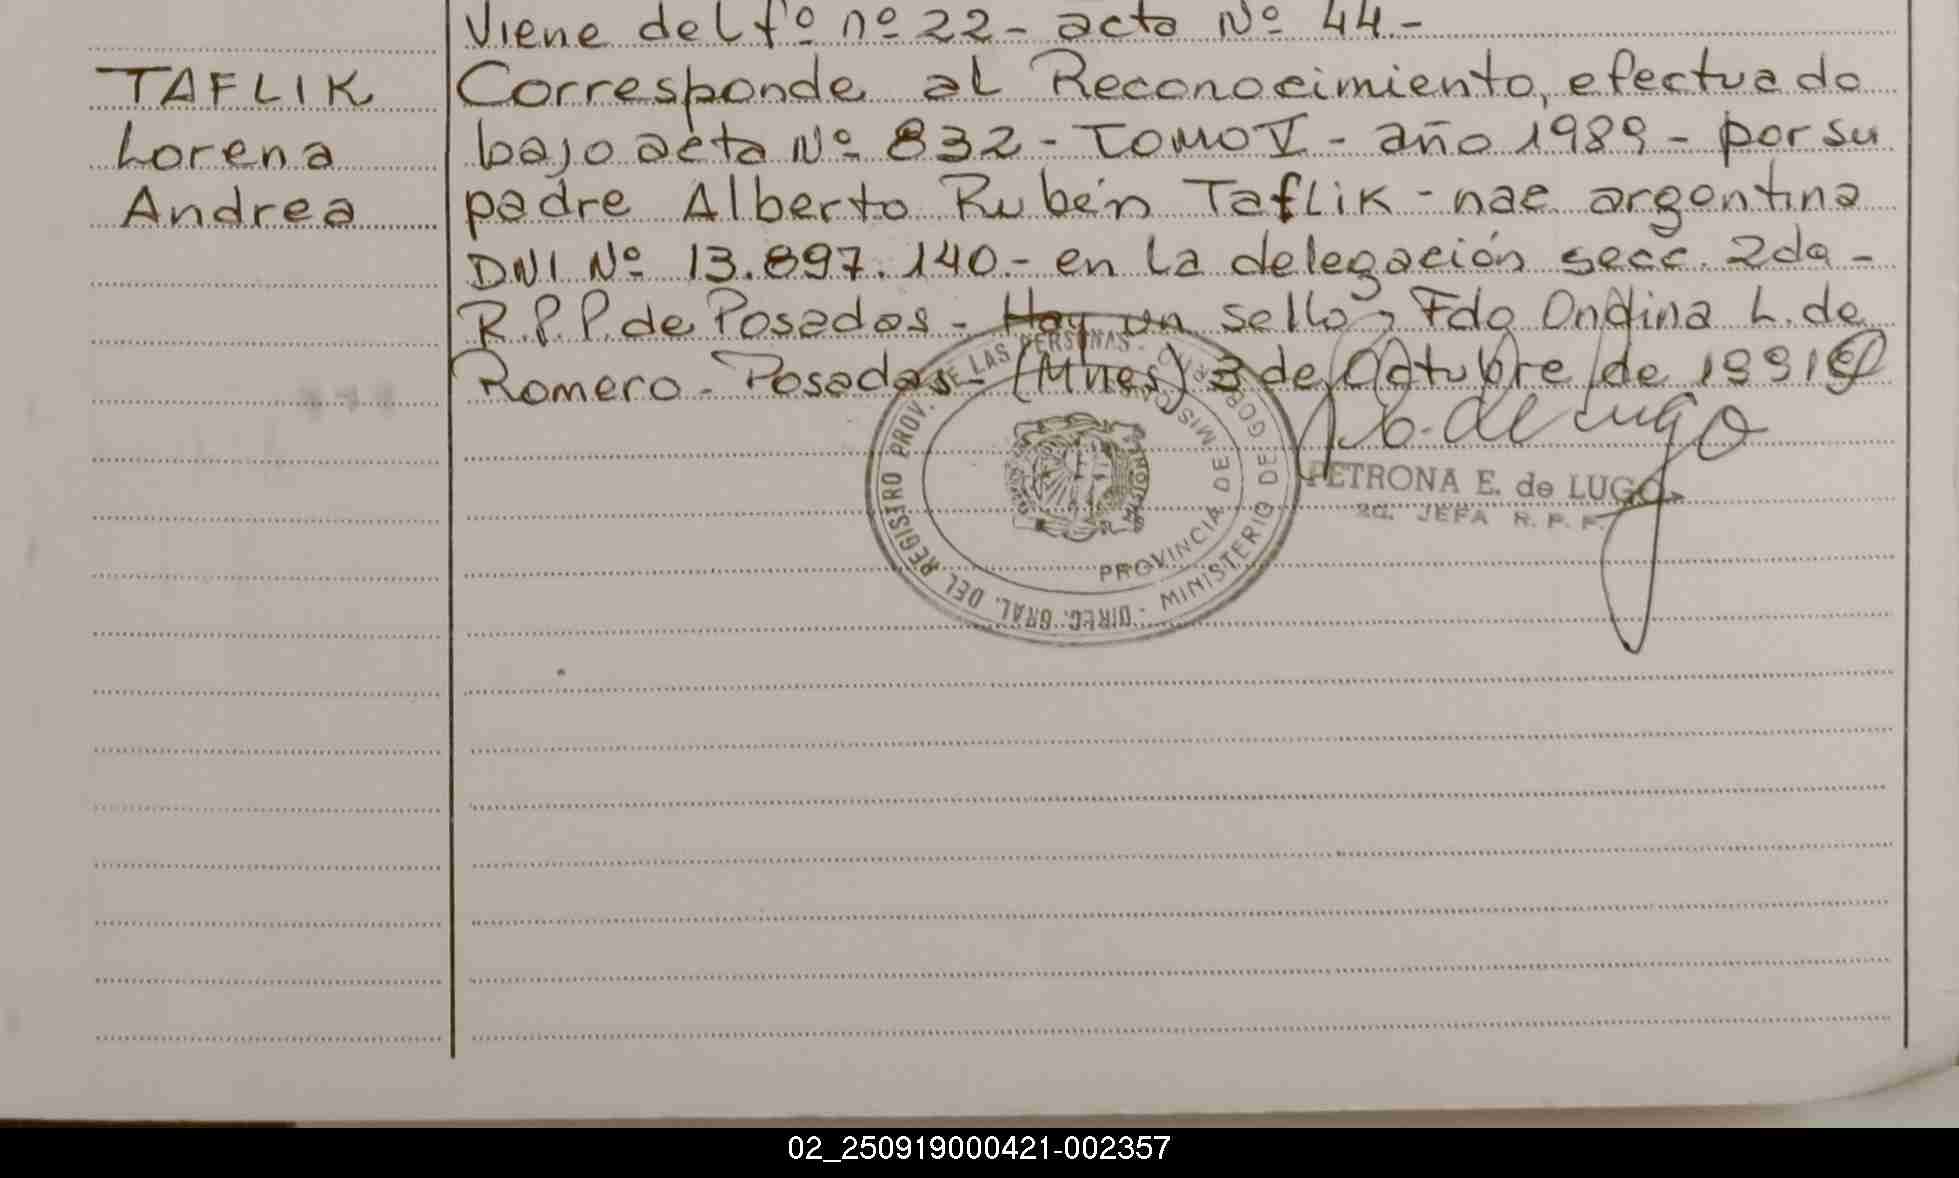 Viene del fº nº 22 - acta Nº 44 -
TAFLIK
Lorena
Andrea
Corresponde al Reconocimiento, efectuado
bajo acta Nº 832 - TOMO V - año 1989 - por su
padre Alberto Rubén Taflik - nac. argentina
DNI Nº 13.897.140.- en la delegación secc. 2da -
R.P.P. de Posadas - Hay un sello, Fdo Ondina L. de
Romero - Posadas - (Mnes) 3 de Octubre de 1991
DIREC. GRAL. DEL REGISTRO PROV. DE LAS PERSONAS - MINISTERIO DE GOBIERNO
PROVINCIA DE MISIONES
MISIONES
de Lugo
PETRONA E. de LUGO
JEFA R. P. P.
02_250919000421-002357